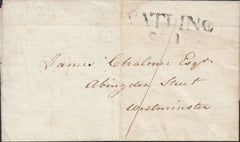 ATLING
James Chalmer Esqr
Abingdon Street
Westminster